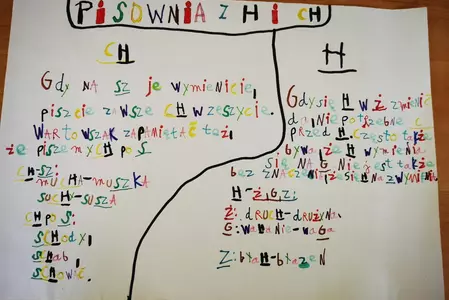 PISOWNIA Z H I CH
CH
Gdy NA SZ je wymienicie,
piszcie zawsze CH w zeszycie.
WARTO WSZAK ZAPAMIĘTAĆ też,
że piszemy CH po S.
CH-SZ:
MUCHA-MUSZKA
SUCHY-SUSZA
CH po S:
SCHODY,
SCHAB
SCHOWIĆ.
H
Gdy się H w Ż zmienić
da, nie potrzebne C
przed H. Często także
bywa, że H wymienia
się NA G
bez ZNACZENIA
H-Ż,G,Z:
Ż: dRUH-dRUŻyNA
G: WAHANIE-WAGA
Z: bŁAH-bŁAZEN